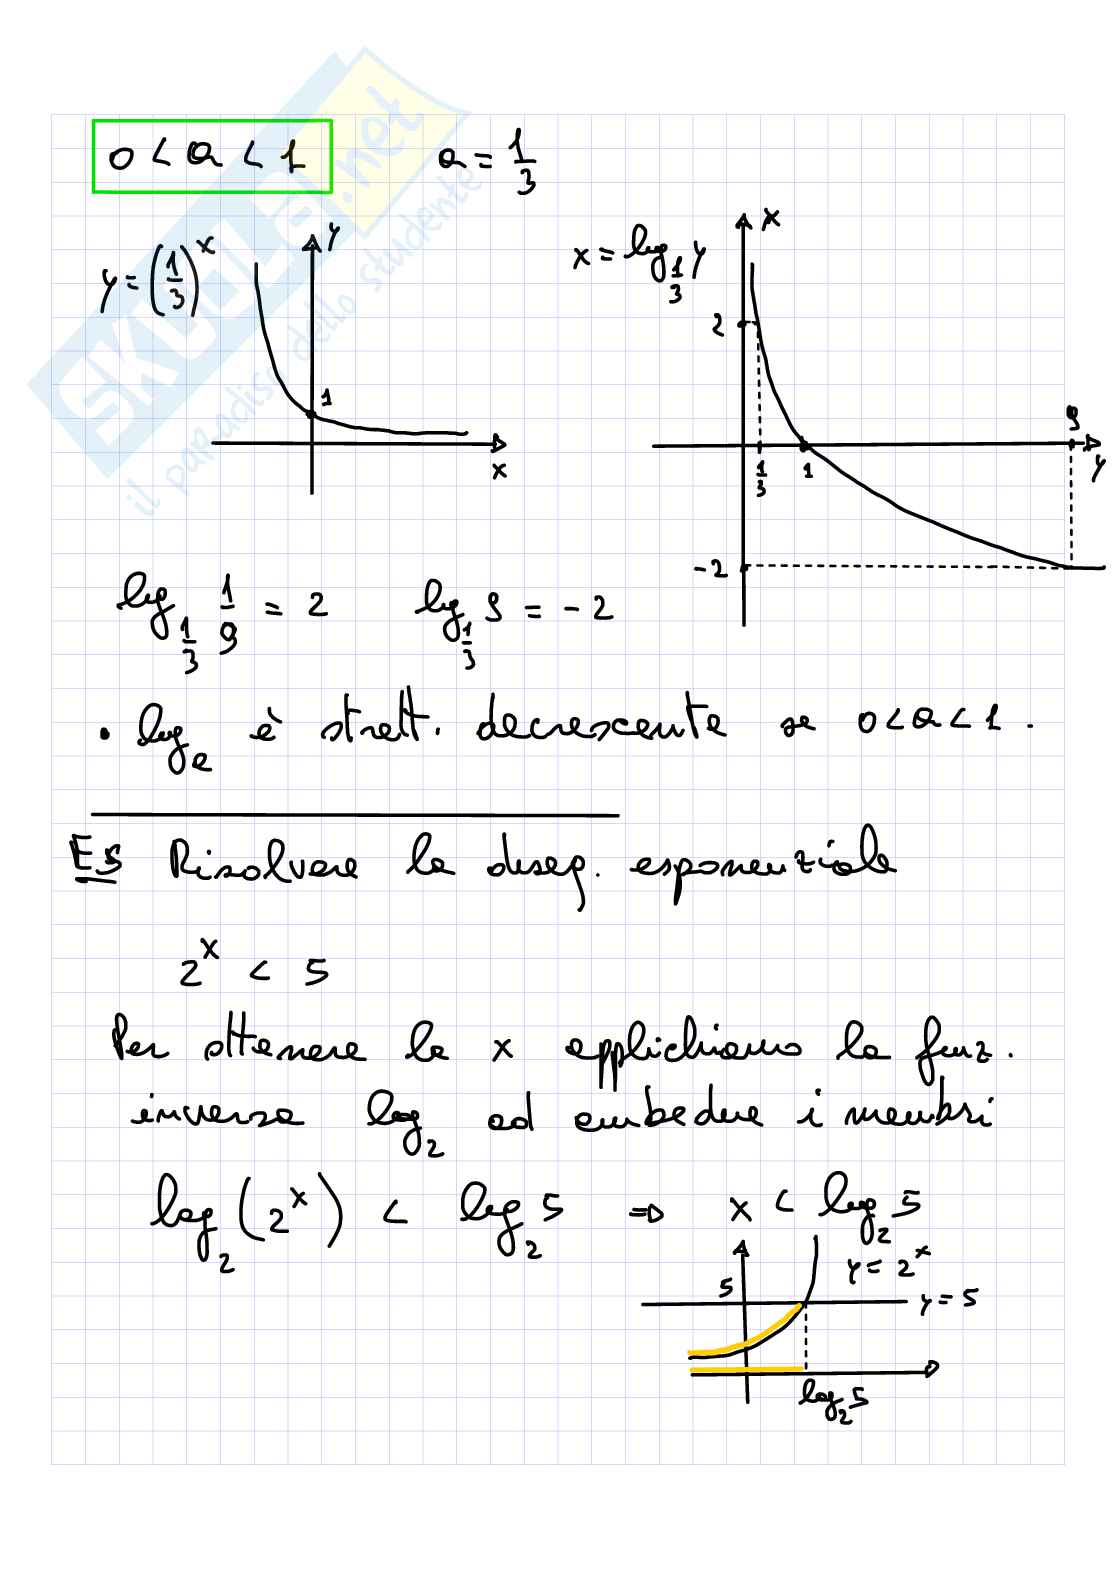 0 < a < 1 a = 1/3
y = (1/3)^x y 1 x
x = log_{1/3} y x 2 1/3 1 9 y -2
log_{1/3} 1/9 = 2 log_{1/3} 9 = -2
• log_a è strett. decrescente se 0 < a < 1 .
ES Risolvere la diseq. esponenziale
2^x < 5
Per ottenere la x applichiamo la funz.
inversa log_2 ad ambedue i membri
log_2 (2^x) < log_2 5 ⇒ x < log_2 5
5 y = 2^x
y = 5
log_2 5
SKUOLA.net
il paradiso dello studente